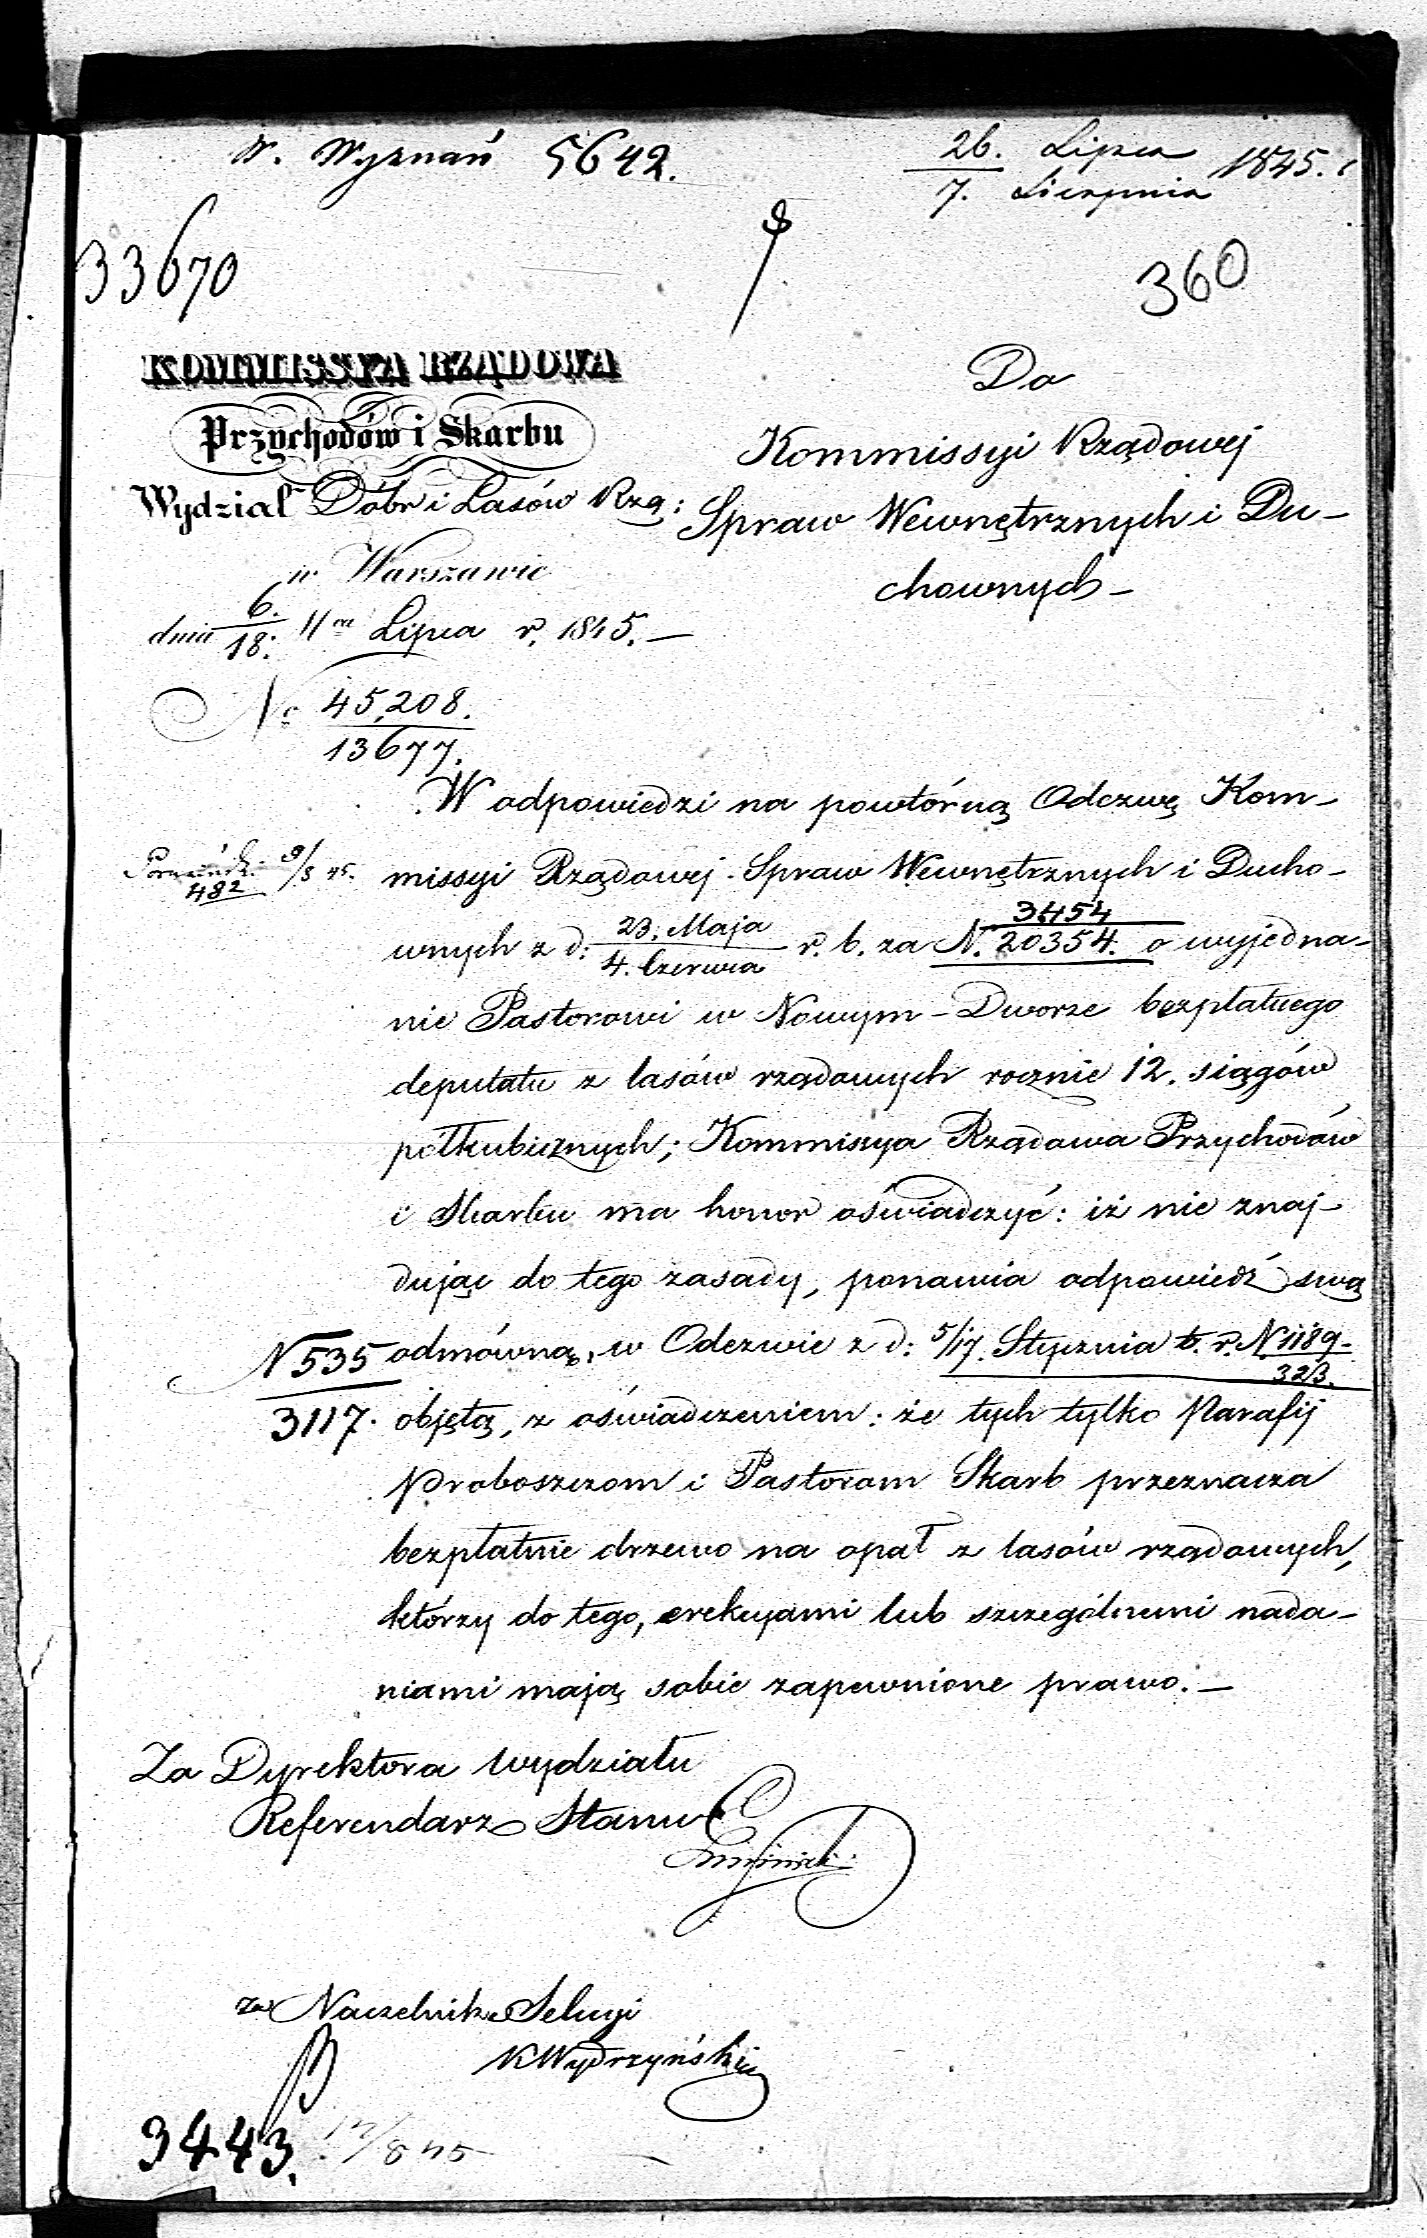 W. Wyznań 5642.
26. Lipca
7. Sierpnia 1845.
33670
360
KOMMISSYA RZĄDOWA
Przychodów i Skarbu
Wydział Dóbr i Lasów Rzą:
w Warszawie
dnia 6./18: Lipca r. 1845. —
No 45,208.
13677.
Do
Kommissyi Rządowej
Spraw Wewnętrznych i Du-
chownych —
W odpowiedzi na powtórną Odezwę Kom-
482
9/8 45.
missyi Rządowej Spraw Wewnętrznych i Ducho-
wnych z d: 23. Maja/4. Czerwca r. b. za N. 3454/20354. o wyjedna-
nie Pastorowi w Nowym-Dworze bezpłatnego
deputatu z lasów rządowych rocznie 12. siągów
półkubicznych; Kommissya Rządowa Przychodów
i Skarbu ma honor oświadczyć: iż nie znaj-
dując do tego zasady, ponawia odpowiedź swą
N 535
3117.
odmówną, w Odezwie z d: 5/17. Stycznia b. r. N. 1189/323.
objętą, z oświadczeniem: że tych tylko Parafij
Proboszczom i Pastorom Skarb przeznacza
bezpłatnie drzewo na opał z lasów rządowych,
którzy do tego, erekcyami lub szczególnemi nada-
niami mają sobie zapewnione prawo. —
Za Dyrektora Wydziału
Referendarz Stanu
za Naczelnika Sekcyi
K Wydrzyński
3443.
17/8 45